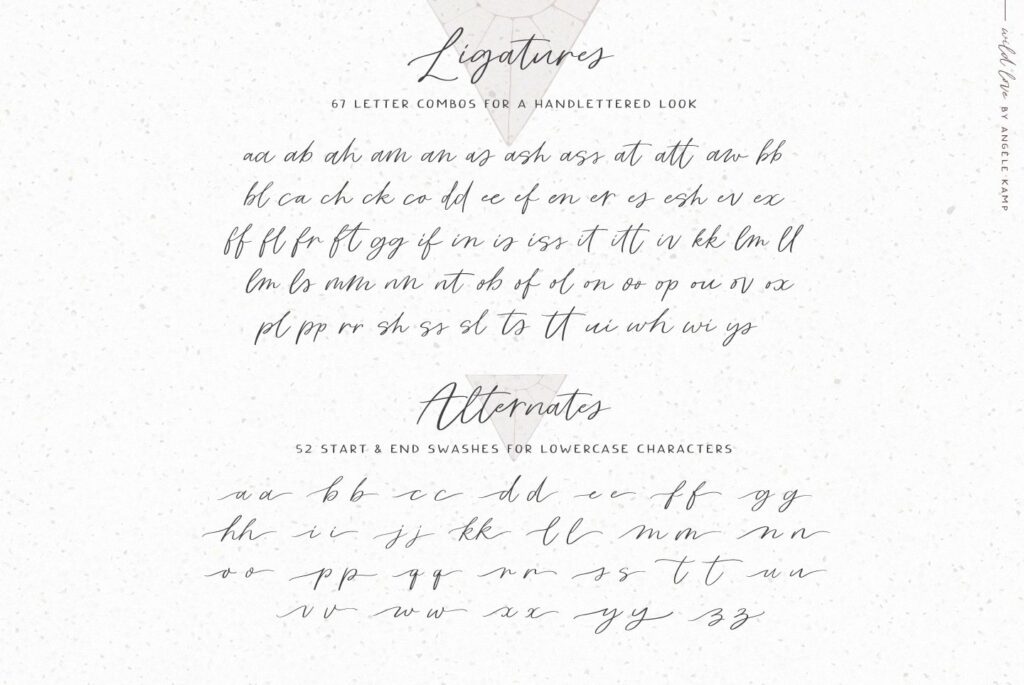 Ligatures
67 LETTER COMBOS FOR A HANDLETTERED LOOK
aa ab ah am an as ash ass at att aw bb
bl ca ch ck co dd ee ef en er es esh ev ex
ff fl fr ft gg if in is iss it itt iv kk lm ll
lm ls mm nn nt ob of ol on oo op ou ov ox
pl pp rr sh ss sl ts tt ui wh wi ys
Alternates
52 START & END SWASHES FOR LOWERCASE CHARACTERS
a a b b c c d d e e f f g g
h h i i j j k k l l m m n n
o o p p q q r r s s t t u u
v v w w x x y y z z
wild love BY ANGELE KAMP